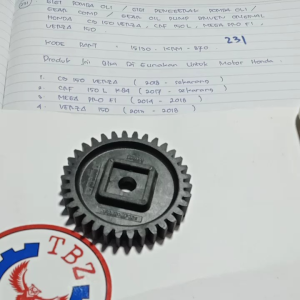 GIGI POMPA OLI / GIGI PENGGERAK POMPA OLI /
GEAR COMP / GEAR OIL PUMP DRIVEN ORIGINAL
HONDA CB 150 VERZA, CRF 150 L, MEGA PRO FI,
VERZA 150
231
KODE PART :
Produk Ini Bisa Di Gunakan Untuk Motor Honda :
1. CB 150 VERZA (2018 - sekarang)
2. CRF 150 L K84 (2017 - sekarang)
3. MEGA PRO FI (2014 - 2018)
4. VERZA 150 (2014 - 2018)
TBZ